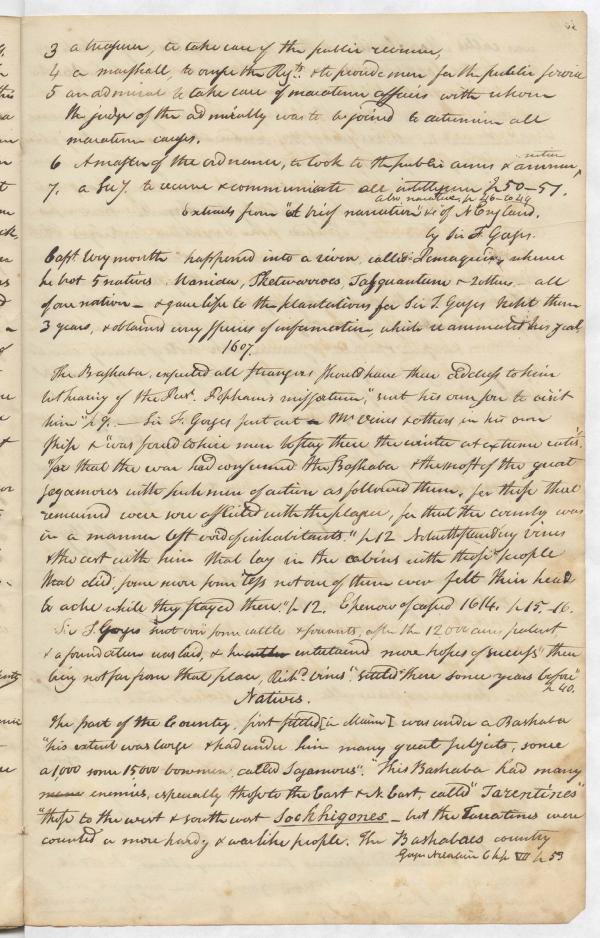 3 a treasurer, to take care of the public revenue,
4 a marshall, to the Regts. & to provide men for the public service
5 an admiral to take care of maratime affairs with whom
the judge of the admiralty was to be joined to determine all
maratime causes.
6 A master of the ordnance, to look to the public arms & ammunition,
7. a Secy. to receive & communicate all intelligence p 50-51.
also narrative, p 46-to 49
Extracts from "A brief narration" &c of N England.
by Sir F. Gorges.
Capt Weymouth happened into a river, called Pemaquid, where
he got 5 natives Manida, Sketwarroes, Tasquantum & 2 others - all
of one nation - & gave life to the plantations for Sir F. Gorges kept them
3 years, & obtained every species of information, which reanimated his zeal,
1607.
The Bashaba, expected all strangers should have their address to him
but hearing of the Pres. Popham's misfortune," sent his own son to visit
him "p 9. - Sir F. Gorges sent out Mr Vines & others in his own
ship & "was forced to hire men to stay there the winter at extreme rates".
"for that the war had consumed the Bashaba & the most of the great
segamores with such men of action as followed them, for those that
remained were sore afflicted with the plague, for that the country was
in a manner left void of inhabitants." p 12 Notwithstanding Vines
& the rest with him that lay in the cabins with those people
that died some more some less not one of them ever felt their head
to ache while they stayed there" p 12. Epenow escaped 1614. p 15-16.
Sir F. Gorges sent over some cattle & servants, after the 12000 acres patent
& a foundation was laid, & he entertained more hopes of success "their
being not far from that place, Richd. Vines". settled "there some years before"
p 40.
Natives.
The part of the Country, first settled [in Maine] was under a Bashaba
"his extent was large & had under him many great subjects, some
a 1000 some 1500 bowmen, called Sagamores". "This Bashaba had many
enemies, especially those to the East & N. East, called "Tarentines"
"those to the west & south west Sockhigones - but the Tarratines were
counted a more hardy & warlike people. The Bashabaes country
Gorges Narration Chp VII p 53